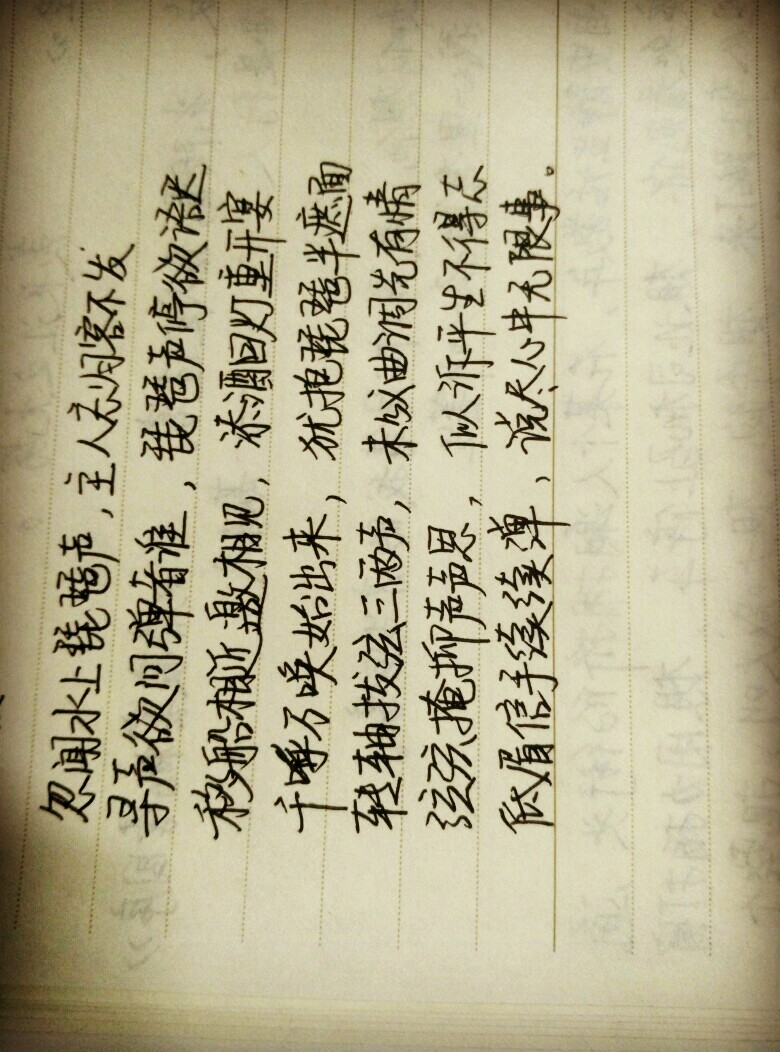 忽闻水上琵琶声,主人忘归客不发
寻声欲问弹者谁,琵琶声停欲语迟
移船相近邀相见,添酒回灯重开宴
千呼万唤始出来,犹抱琵琶半遮面
转轴拨弦三两声,未成曲调先有情
弦弦掩抑声声思,似诉平生不得志
低眉信手续续弹、说尽心中无限事。